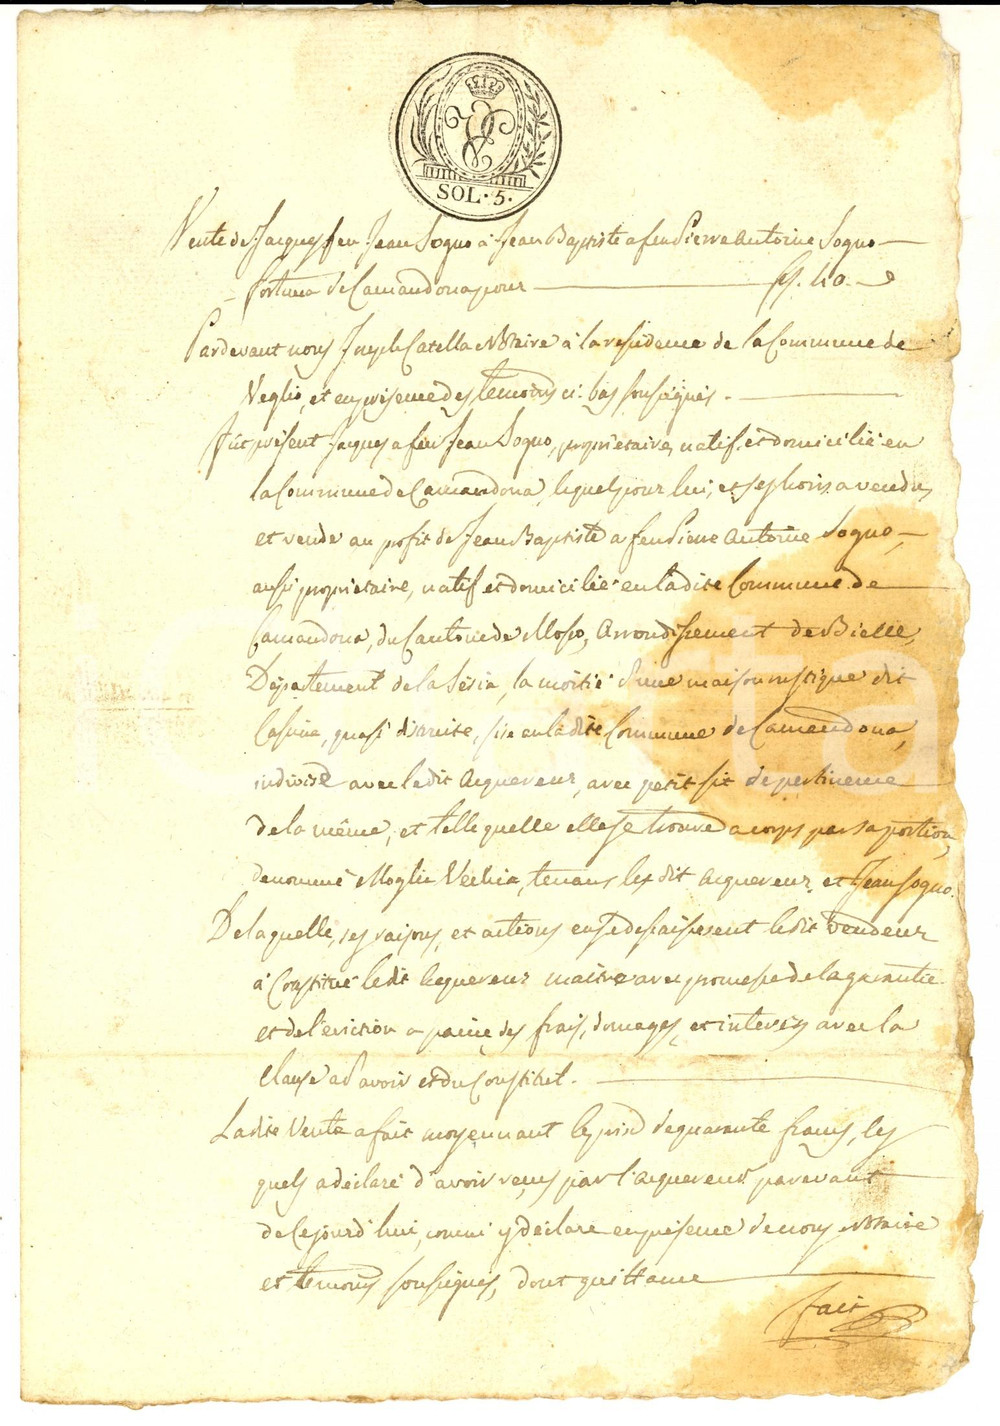 SOL · 5 ·
Vente de Jacques feu Jean Sogno à Jean Baptiste a feu Pierre Antoine Sogno
fortuna de Camandona pour f. 40.
Pardevant nous Joseph Catella Notaire à la résidence de la Commune de
Veglio, et en présence des temoins ci bas soussignés.
Fût présent Jacques a feu Jean Sogno, propriétaire, natif et domicilié en
la Commune de Camandona, lequel pour lui, et ses hoirs a vendu,
et vende au profit de Jean Baptiste a feu Pierre Antoine Sogno,
aussi propriétaire, natif et domicilié en la dite Commune de
Camandona, du Canton de Mosso, Arrondissement de Bielle,
Département de la Sésia, la moitié d'une maison rustique dit
Casina, quasi diruite, sise en la dite Commune de Camandona,
indivise avec le dit Acquereur, avec petit sit de pertinence
de la même, et telle quelle elle se trouve a corps par sa portion,
denommé Moglia Vechia, tenans les dit Acquereur, et Jean Sogno.
De laquelle, ses raisons, et actions en se desaisissent le dit Vendeur
à Constitué le dit Acquereur maitre avec promesse de la garantie
et de l'eviction a peine des frais, domages, et interets avec la
Clause d'avoir et du Constitut.
La dite Vente a fait moyennant le prix de quarante francs, les
quels a déclaré d'avoir reçus par l'Acquereur paravant
de ce jourd'hui, comm' y déclare en présence de nous Notaire
et temoins soussignés, dont quittance
fait